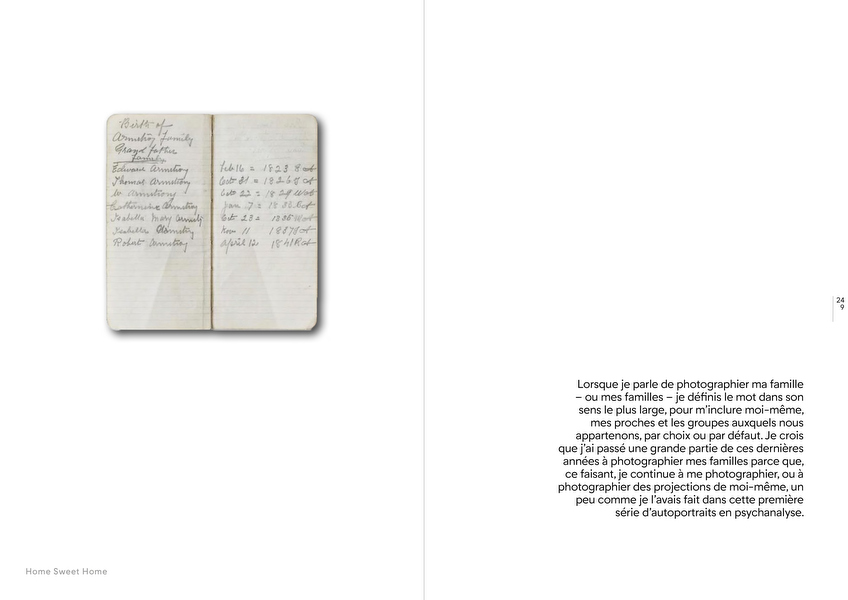 Birth of
Armstrong Family
Grand father
Family
Edward Armstrong Feb 16 = 1823
Thomas Armstrong Oct 31 = 1826
Armstrong Oct 22 = 1829
Catherine Armstrong Jan 7 =
Isabella Mary Oct 23 =
Isabella Armstrong Nov 11
Robert Armstrong April 12
24
9
Lorsque je parle de photographier ma famille
– ou mes familles – je définis le mot dans son
sens le plus large, pour m’inclure moi-même,
mes proches et les groupes auxquels nous
appartenons, par choix ou par défaut. Je crois
que j’ai passé une grande partie de ces dernières
années à photographier mes familles parce que,
ce faisant, je continue à me photographier, ou à
photographier des projections de moi-même, un
peu comme je l’avais fait dans cette première
série d’autoportraits en psychanalyse.
Home Sweet Home